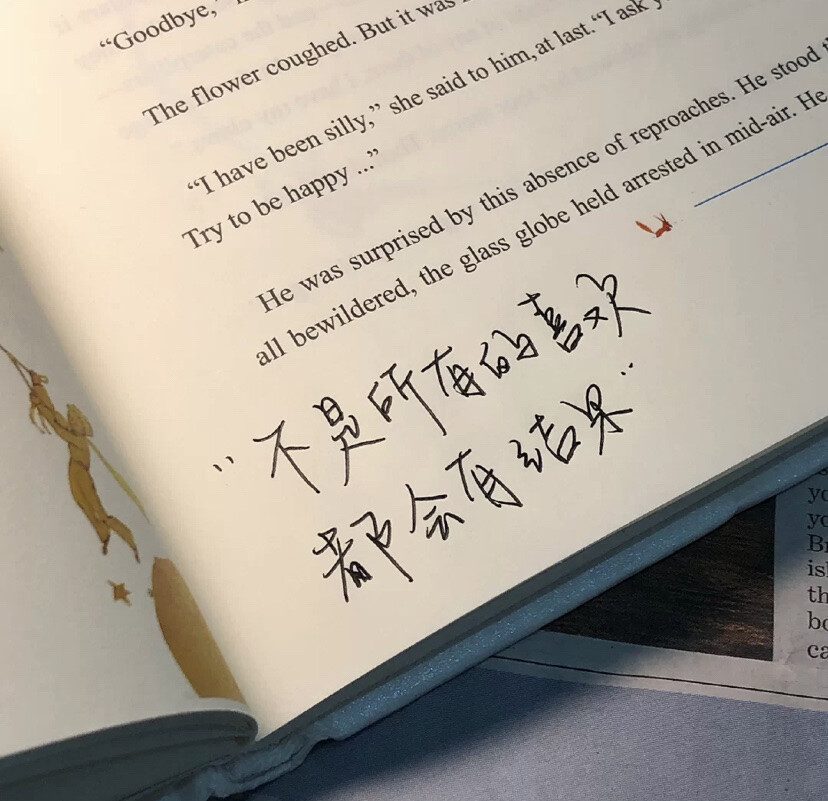 “Goodbye,”
The flower coughed. But it was
“I have been silly,” she said to him, at last. “I ask
Try to be happy ...”
He was surprised by this absence of reproaches. He stood
all bewildered, the glass globe held arrested in mid-air. He
“不是所有的喜欢
都会有结果”